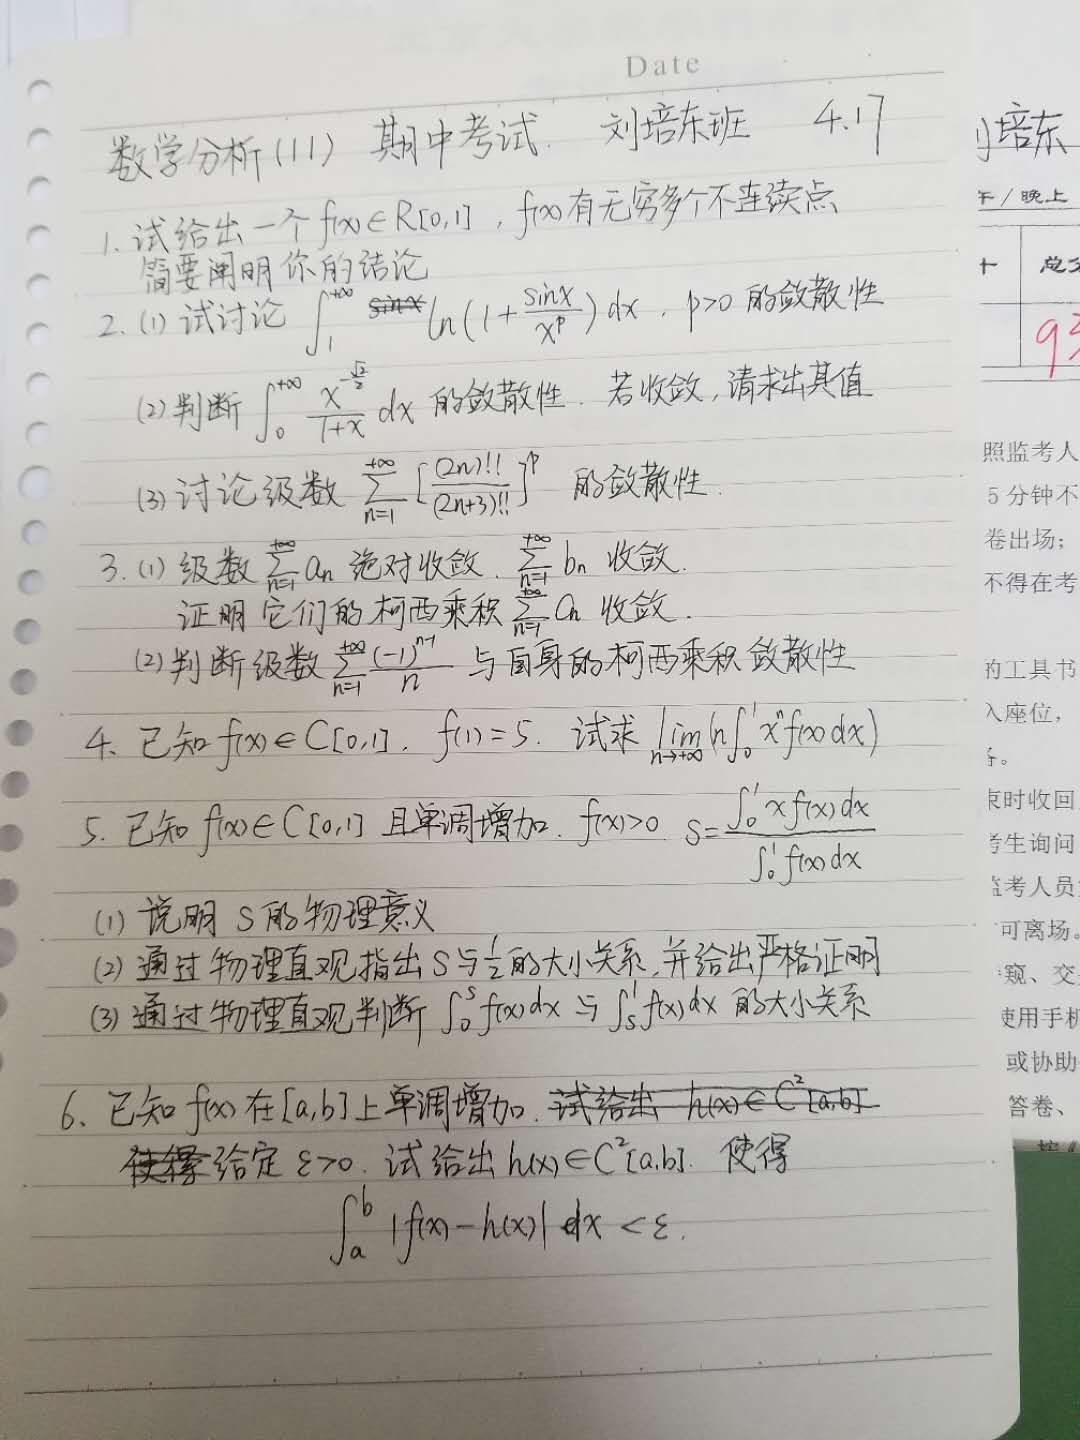 Date
数学分析(11) 期中考试. 刘培东班 4.17
1. 试给出一个 f(x)∈R[0,1], f(x)有无穷多个不连续点
简要阐明你的结论
2. (1) 试讨论 ∫₁^{+∞} ln(1+sinx/x^p)dx, p>0 的敛散性
(2) 判断 ∫₀^{+∞} x^{-√2/2}/(1+x) dx 的敛散性. 若收敛, 请求出其值
(3) 讨论级数 ∑_{n=1}^{+∞} [(2n)!!/(2n+3)!!]^p 的敛散性.
3. (1) 级数 ∑_{n=1}^{+∞} aₙ 绝对收敛. ∑_{n=1}^{+∞} bₙ 收敛.
证明它们的柯西乘积 ∑_{n=1}^{+∞} cₙ 收敛.
(2) 判断级数 ∑_{n=1}^{+∞} (-1)^{n-1}/n 与自身的柯西乘积敛散性
4. 已知 f(x)∈C[0,1]. f(1)=5. 试求 lim_{n→+∞} (n∫₀¹ xⁿf(x)dx)
5. 已知 f(x)∈C[0,1] 且单调增加. f(x)>0 S=∫₀¹ xf(x)dx / ∫₀¹ f(x)dx
(1) 说明 S 的物理意义
(2) 通过物理直观指出 S 与 1/2 的大小关系, 并给出严格证明
(3) 通过物理直观判断 ∫₀^S f(x)dx 与 ∫_S^1 f(x)dx 的大小关系
6. 已知 f(x) 在 [a,b] 上单调增加. 试给出 h(x)∈C²[a,b]
使得 给定 ε>0. 试给出 h(x)∈C²[a,b]. 使得
∫_a^b |f(x)-h(x)| dx < ε.
培东
/晚上
总
照监考人
5 分钟不
卷出场；
不得在考
的工具书
入座位，
束时收回
考生询问
监考人员
可离场。
窥、交
使用手机
或协助
答卷、